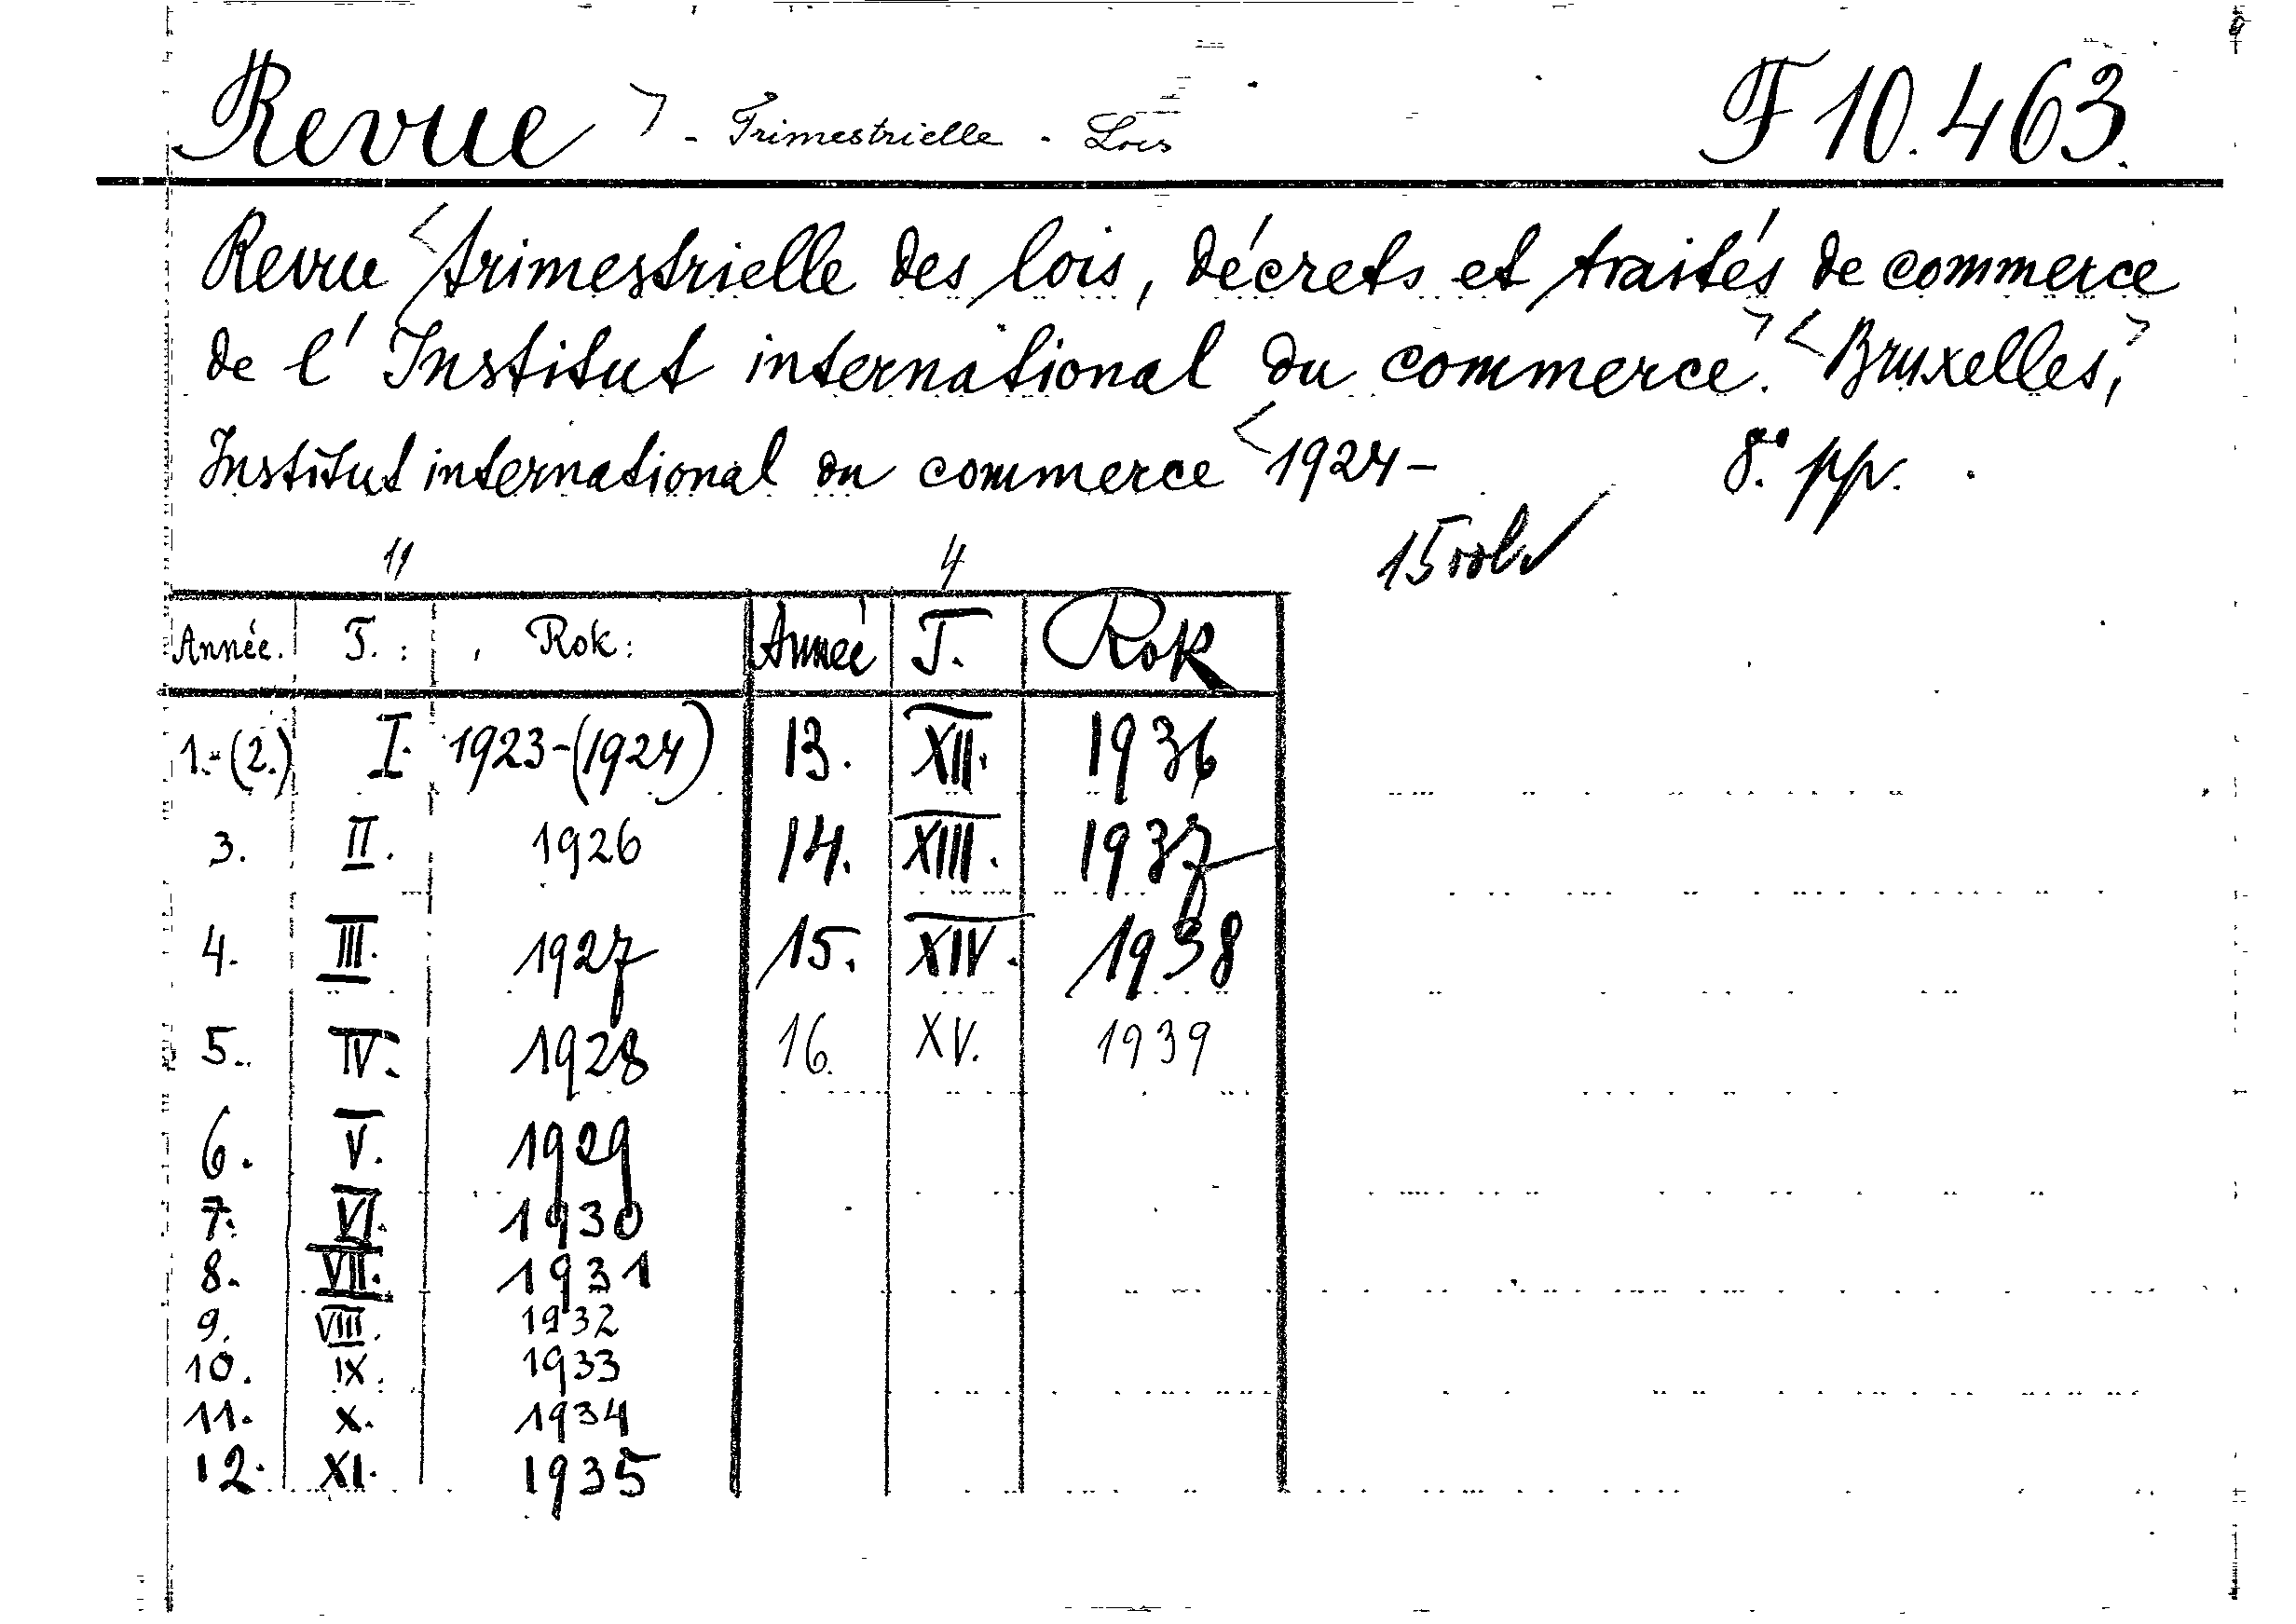 Revue - Trimestrielle - Lois F 10.463.
Revue trimestrielle des lois, décrets et traités de commerce
de l'Institut international du commerce. Bruxelles,
Institut international du commerce 1924- 8° pp.
15 vol
11 4
Année. T. : Rok: Année T. Rok
1.-(2.) I. 1923-(1924) 13. XII. 1936
3. II. 1926 14. XIII. 1937
4. III. 1927 15. XIV. 1938
5. IV. 1928 16. XV. 1939
6. V. 1929
7. VI. 1930
8. VII. 1931
9. VIII. 1932
10. IX. 1933
11. X. 1934
12. XI. 1935